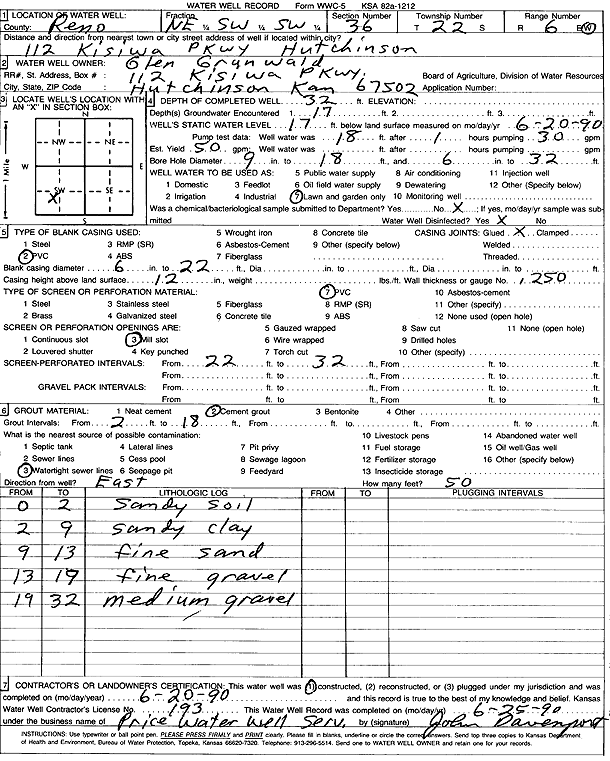 WATER WELL RECORD Form WWC-5 KSA 82a-1212
1 LOCATION OF WATER WELL: Fraction Section Number Township Number Range Number
County: Reno NE ¼ SW ¼ SW ¼ 36 T 22 S R 6 E/W
Distance and direction from nearest town or city street address of well if located within city?
112 Kisiwa PKwy Hutchinson
2 WATER WELL OWNER: Glen Grunwald
RR#, St. Address, Box # : 112 Kisiwa PKwy. Board of Agriculture, Division of Water Resources
City, State, ZIP Code : Hutchinson Kan 67502 Application Number:
3 LOCATE WELL'S LOCATION WITH AN "X" IN SECTION BOX:
N
NW NE
W E
SW SE
X
S
1 Mile
4 DEPTH OF COMPLETED WELL 32 ft. ELEVATION:
Depth(s) Groundwater Encountered 1. 17 ft. 2. ft. 3. ft.
WELL'S STATIC WATER LEVEL 17 ft. below land surface measured on mo/day/yr 6-20-90
Pump test data: Well water was 18 ft. after 1 hours pumping 30 gpm
Est. Yield 50 gpm: Well water was ft. after hours pumping gpm
Bore Hole Diameter 9 in. to 18 ft., and 6 in. to 32 ft.
WELL WATER TO BE USED AS: 5 Public water supply 8 Air conditioning 11 Injection well
1 Domestic 3 Feedlot 6 Oil field water supply 9 Dewatering 12 Other (Specify below)
2 Irrigation 4 Industrial 7 Lawn and garden only 10 Monitoring well
Was a chemical/bacteriological sample submitted to Department? Yes No X ; If yes, mo/day/yr sample was sub-
mitted Water Well Disinfected? Yes X No
5 TYPE OF BLANK CASING USED: 5 Wrought iron 8 Concrete tile CASING JOINTS: Glued X Clamped
1 Steel 3 RMP (SR) 6 Asbestos-Cement 9 Other (specify below) Welded
2 PVC 4 ABS 7 Fiberglass Threaded
Blank casing diameter 6 in. to 22 ft., Dia in. to ft., Dia in. to ft.
Casing height above land surface 12 in., weight lbs./ft. Wall thickness or gauge No. .250
TYPE OF SCREEN OR PERFORATION MATERIAL: 7 PVC 10 Asbestos-cement
1 Steel 3 Stainless steel 5 Fiberglass 8 RMP (SR) 11 Other (specify)
2 Brass 4 Galvanized steel 6 Concrete tile 9 ABS 12 None used (open hole)
SCREEN OR PERFORATION OPENINGS ARE: 5 Gauzed wrapped 8 Saw cut 11 None (open hole)
1 Continuous slot 3 Mill slot 6 Wire wrapped 9 Drilled holes
2 Louvered shutter 4 Key punched 7 Torch cut 10 Other (specify)
SCREEN-PERFORATED INTERVALS: From 22 ft. to 32 ft., From ft. to ft.
From ft. to ft., From ft. to ft.
GRAVEL PACK INTERVALS: From ft. to ft., From ft. to ft.
From ft. to ft., From ft. to ft.
6 GROUT MATERIAL: 1 Neat cement 2 Cement grout 3 Bentonite 4 Other
Grout Intervals: From 2 ft. to 18 ft., From ft. to ft., From ft. to ft.
What is the nearest source of possible contamination: 10 Livestock pens 14 Abandoned water well
1 Septic tank 4 Lateral lines 7 Pit privy 11 Fuel storage 15 Oil well/Gas well
2 Sewer lines 5 Cess pool 8 Sewage lagoon 12 Fertilizer storage 16 Other (specify below)
3 Watertight sewer lines 6 Seepage pit 9 Feedyard 13 Insecticide storage
Direction from well? East How many feet? 50
FROM TO LITHOLOGIC LOG FROM TO PLUGGING INTERVALS
0 2 Sandy soil
2 9 sandy clay
9 13 fine sand
13 19 fine gravel
19 32 medium gravel
7 CONTRACTOR'S OR LANDOWNER'S CERTIFICATION: This water well was (1) constructed, (2) reconstructed, or (3) plugged under my jurisdiction and was
completed on (mo/day/year) 6-20-90 and this record is true to the best of my knowledge and belief. Kansas
Water Well Contractor's License No. 193 This Water Well Record was completed on (mo/day/yr) 6-25-90
under the business name of Price Water Well Serv. by (signature) John Davenport
INSTRUCTIONS: Use typewriter or ball point pen. PLEASE PRESS FIRMLY and PRINT clearly. Please fill in blanks, underline or circle the correct answers. Send top three copies to Kansas Department
of Health and Environment, Bureau of Water Protection, Topeka, Kansas 66620-7320. Telephone: 913-296-5514. Send one to WATER WELL OWNER and retain one for your records.